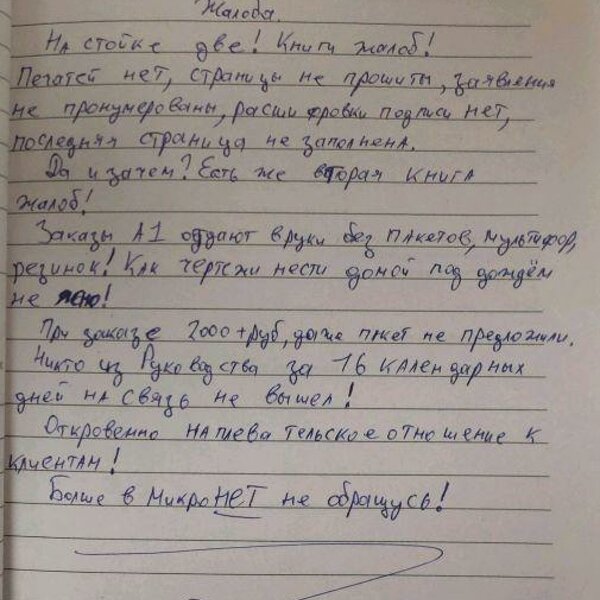 Жалоба.
На стойке две! Книги жалоб!
Печатей нет, страницы не прошиты, заявления
не пронумерованы, расшифровки подписи нет,
последняя страница не заполнена.
Да и зачем? Есть же вторая книга
жалоб!
Заказы А1 отдают в руки без пакетов, мультифор,
резинок! Как чертежи нести домой под дождём
не ясно!
При заказе 2000+руб, даже пакет не предложили.
Никто из Руководства за 16 календарных
дней на связь не вышел!
Откровенно наплевательское отношение к
клиентам!
Больше в МикроНЕТ не обращусь!